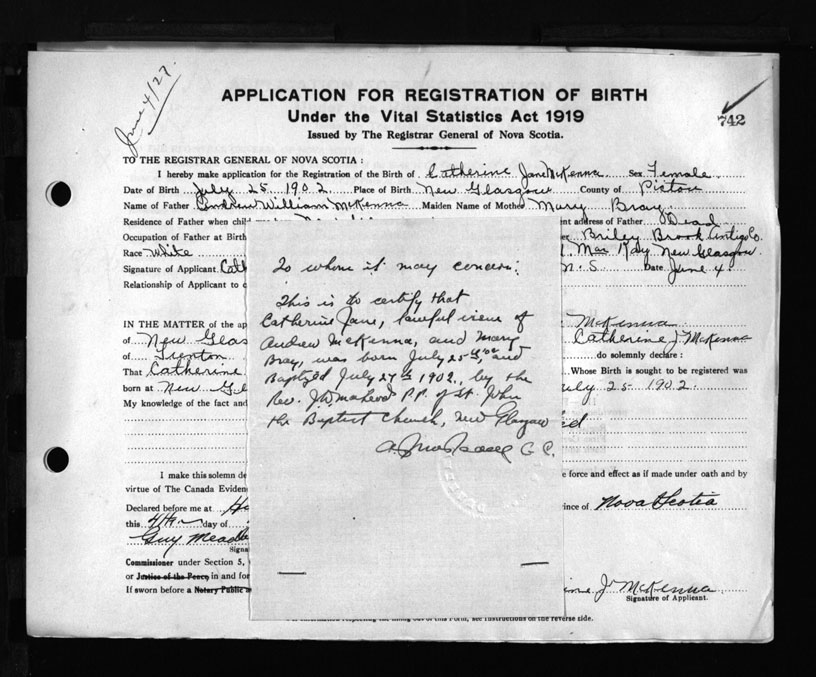 June 4/27.
APPLICATION FOR REGISTRATION OF BIRTH
Under the Vital Statistics Act 1919
742
Issued by The Registrar General of Nova Scotia.
TO THE REGISTRAR GENERAL OF NOVA SCOTIA:
I hereby make application for the Registration of the Birth of Catherine Jane McKenna Sex Female
Date of Birth July 25 1902 Place of Birth New Glasgow County of Pictou
Name of Father Andrew William McKenna Maiden Name of Mother Mary Bray
Residence of Father when chil address of Father Dead
Occupation of Father at Birth Briley Brook Antigo Co.
Race White New Glasgow
Signature of Applicant Cath N.S Date June 4
Relationship of Applicant to
To whom it may concern:
This is to certify that
Catherine Jane, lawful issue of
Andrew McKenna, and Mary
Bray, was born July 25th, 02 and
Baptized July 27th 1902, by the
Rev. P.P. of St. John
the Baptist Church, New Glasgow
C.C.
IN THE MATTER of the ap McKenna
of New Glas Catherine J McKenna
of Trenton do solemnly declare:
That Catherine Whose Birth is sought to be registered was
born at New Gl July 25 1902
My knowledge of the fact and
I make this solemn de e force and effect as if made under oath and by
virtue of The Canada Eviden
Declared before me at ince of Nova Scotia
this 4th day of
Guy
Signa
Commissioner under Section 5,
or Justice of the Peace in and for
If sworn before a Notary Public J McKenna
Signature of Applicant.
of this Form, see instructions on the reverse side.